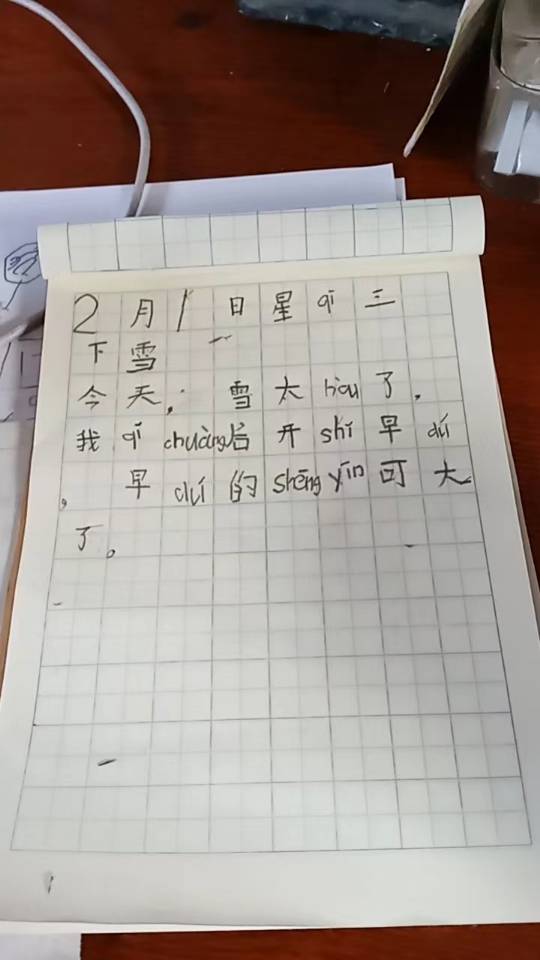 2月1日星qī三
下雪
今天，雪太hòu了，
我qǐ chuàng后开shǐ早dú
，早dú的shēngyīn可大
了。